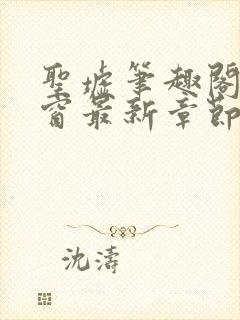 聖墟筆趣閣
窗最新章節
沈濤